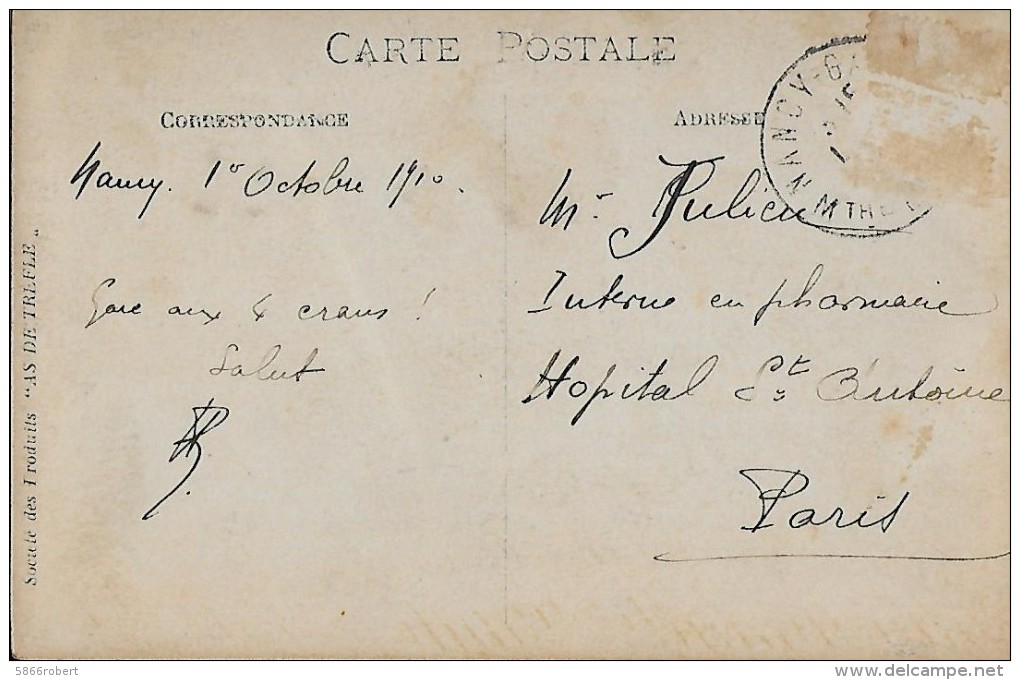 CARTE POSTALE
CORRESPONDANCE
ADRESSE
NANCY-GA
M THE
Nancy. 1er Octobre 1910.
Gare aux 4 crans !
Salut
Mr Julien
Interne en pharmacie
Hopital St Antoine
Paris
Société des Produits "AS DE TREFLE"
5866robert
delcampe.net